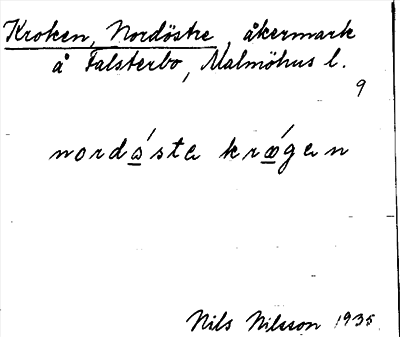 Kroken, Nordöstre, åkermark
å Falsterbo, Malmöhus l.
9
nordǝ́stɐ krǿgɐn
Nils Nilsson 1935